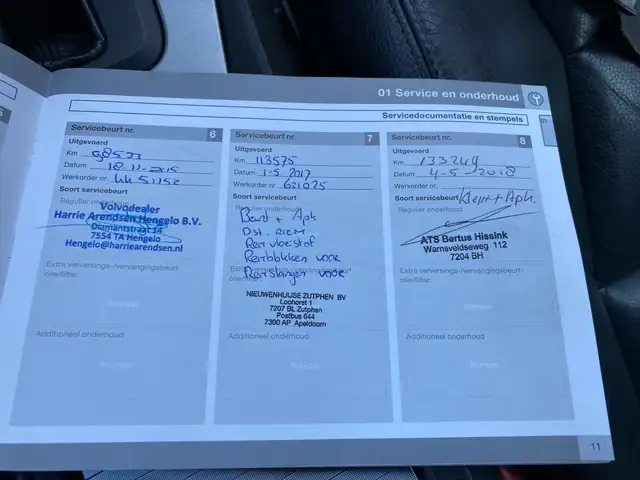 01 Service en onderhoud
Servicedocumentatie en stempels
Servicebeurt nr. 6
Uitgevoerd
Km
Datum 18-11-2015
Werkorder nr.
Soort servicebeurt
Regulier onderhoud
Volvodealer
Harrie Arendsen Hengelo B.V.
Diamantstraat 14
7554 TA Hengelo
Hengelo@harriearendsen.nl
Extra verversings-/vervangingsbeurt-
olie/filter:
Stempel
Additioneel onderhoud
Stempel
Servicebeurt nr. 7
Uitgevoerd
Km 113575
Datum 1-5-2017
Werkorder nr. 621025
Soort servicebeurt
Regulier onderhoud
Beurt + Apk
Dst. Riem
Remvloeistof
Remblokken voor
Remslangen voor
NIEUWENHUIJSE ZUTPHEN BV
Loohorst 1
7207 BL Zutphen
Postbus 644
7300 AP Apeldoorn
Additioneel onderhoud
Stempel
Servicebeurt nr. 8
Uitgevoerd
Km 133249
Datum 4-5-2018
Werkorder nr.
Soort servicebeurt
Regulier onderhoud
+ Apk.
ATS Bertus Hissink
Warnsveldseweg 112
7204 BH
Extra verversings-/vervangingsbeurt-
olie/filter:
Stempel
Additioneel onderhoud
Stempel
11